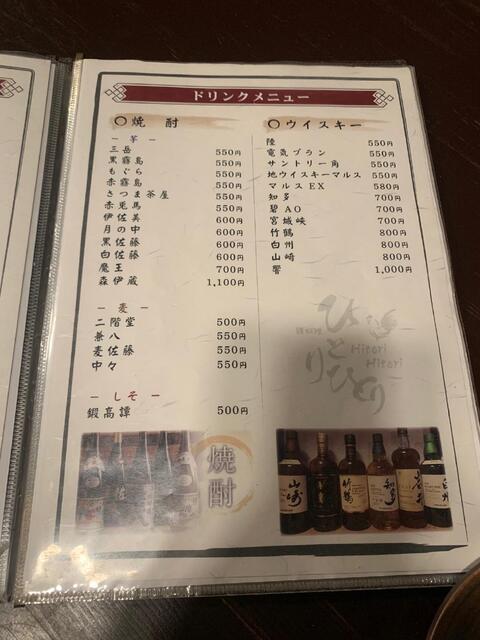 ドリンクメニュー
〇焼 酎
－ 芋 －
三岳 550円
黒霧島 550円
もぐら 550円
赤霧島 550円
さつま茶屋 550円
赤兎馬 550円
伊佐美 600円
月の中 600円
黒佐藤 600円
白佐藤 600円
魔王 700円
森伊蔵 1,100円
－ 麦 －
二階堂 500円
兼八 550円
麦佐藤 550円
中々 550円
－ しそ －
鍛高譚 500円
焼酎
〇ウイスキー
陸 550円
電気ブラン 550円
サントリー角 550円
地ウイスキーマルス 550円
マルスEX 580円
知多 700円
碧AO 700円
宮城峡 700円
竹鶴 800円
白州 800円
山崎 800円
響 1,000円
ひとりひとり
Hitori
Hitori
山崎
竹鶴
知多
白州